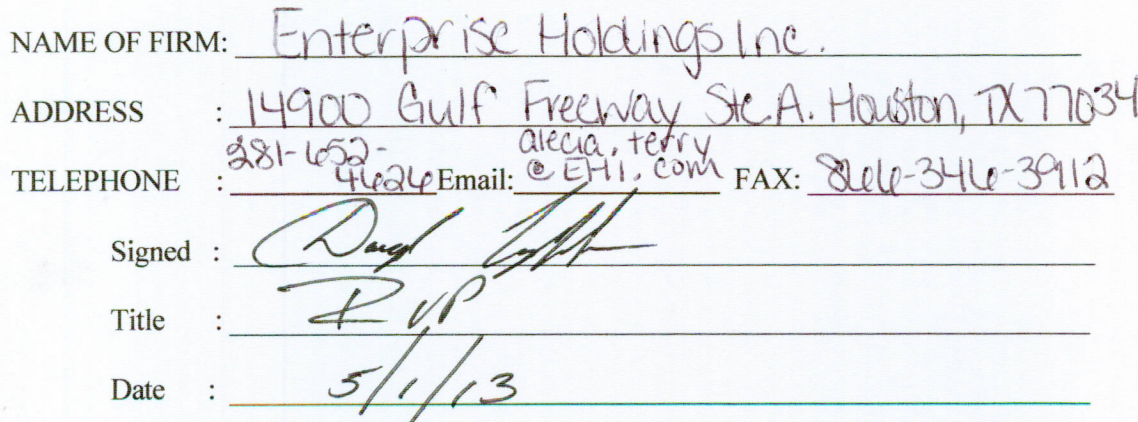 NAME OF FIRM: Enterprise Holdings Inc.
ADDRESS : 14900 Gulf Freeway Ste A. Houston, TX 77034
TELEPHONE : 281-652-4626 Email: alecia.terry@EHI.com FAX: 866-346-3912
Signed :
Title : RVP
Date : 5/1/13